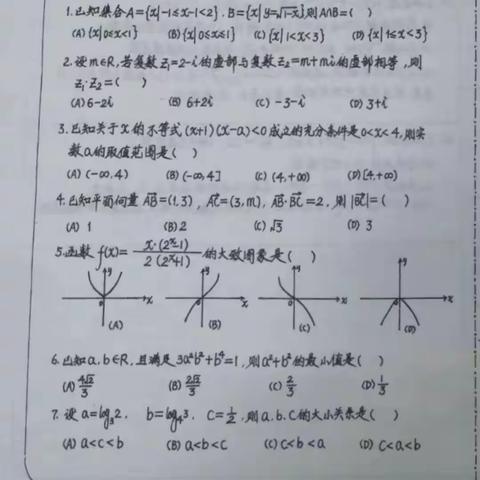 1.已知集合A={x|-1≤x-1<2}, B={x|y=√(1-x)},则A∩B=( )
(A) {x|0≤x<1} (B) {x|0≤x≤1} (C) {x|1<x<3} (D) {x|1≤x<3}
2.设m∈R,若复数z₁=2-i的虚部与复数z₂=m+mi的虚部相等,则
z₁·z₂=( )
(A) 6-2i (B) 6+2i (C) -3-i (D) 3+i
3.已知关于x的不等式(x+1)(x-a)<0成立的充分条件是0<x<4,则实
数a的取值范围是( )
(A) (-∞,4) (B) (-∞,4] (C) (4,+∞) (D) [4,+∞)
4.已知平面向量AB=(1,3), AC=(3,m), AB·BC=2, 则|BC|=( )
(A) 1 (B) 2 (C) √3 (D) 3
5.函数f(x)= x·(2ˣ-1) / 2(2ˣ+1) 的大致图象是( )
y y y y
0 x 0 x 0 x 0 x
(A) (B) (C) (D)
6.已知a,b∈R,且满足3a²b²+b⁴=1,则a²+b²的最小值是( )
(A) 4√2/3 (B) 2√2/3 (C) 2/3 (D) 1/3
7.设a=log₃2, b=log₄3, c=1/2,则a.b.c的大小关系是( )
(A) a<c<b (B) a<b<c (C) c<b<a (D) c<a<b